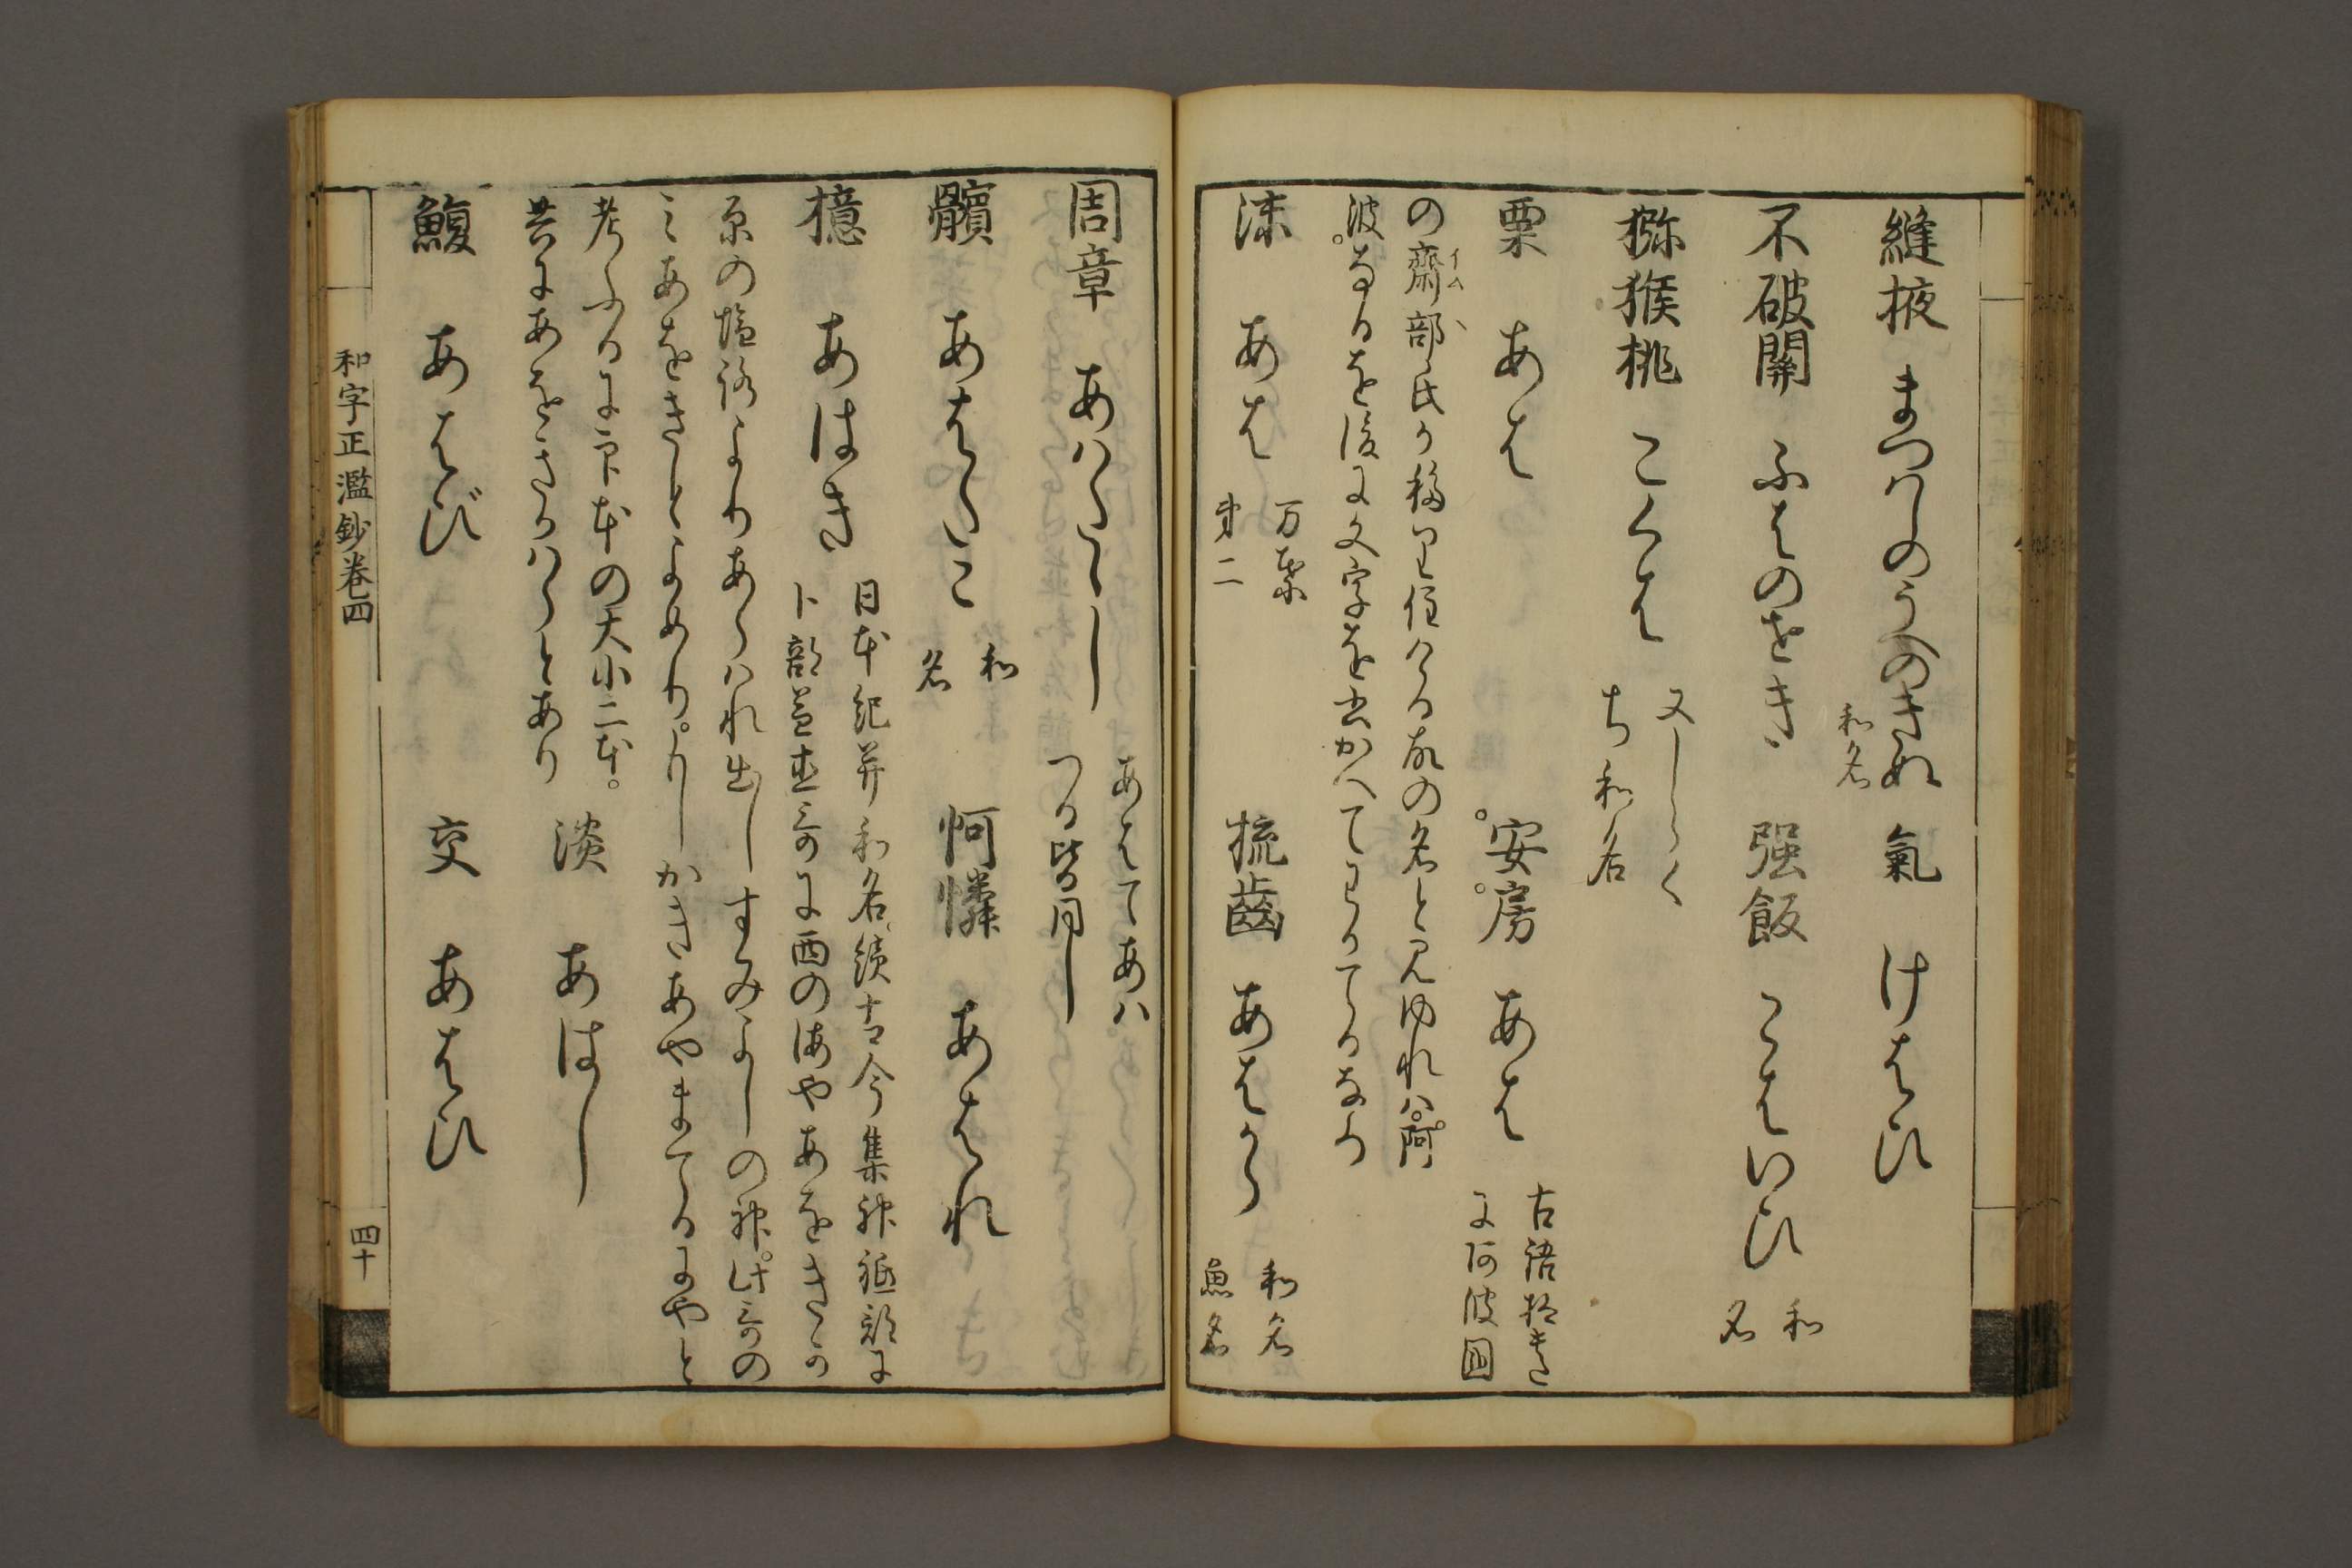 縫掖 まつはしのうへのきぬ 和名 氣 けはひ
不破關 ふはのせき 强飯 こはいひ 和名
獼猴桃 こくは 又しらくち 和名
粟 あは 安房 あは 古語拾遺に阿波國
の齋部氏か移り住ける故の名と見ゆれは。阿
波なるを後に文字を書かへてわかてるなり
沫 あは 万葉第二 梳齒 あはから 和名魚名
周章 あはたゝし あはてあはつる皆同し
髕 あはたこ 和名 怜憐 あはれ
檍 あはき 日本紀并和名。續古今集神祇部に
卜部兼直哥に西の海やあをきか
原の塩路よりあらはれ出しすみよしの神。此哥の
みあをきとよめり。もしかきあやまてるにやと
考ふるに印本の大小二本。
共にあをきかはらとあり 淡 あはし
鰒 あはび 交 あはひ
和字正濫鈔卷四
四十